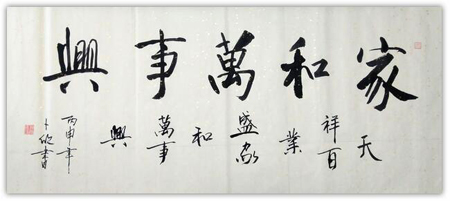 家和萬事興
天
祥百
業
盛家
和
萬事
興
丙申年
書